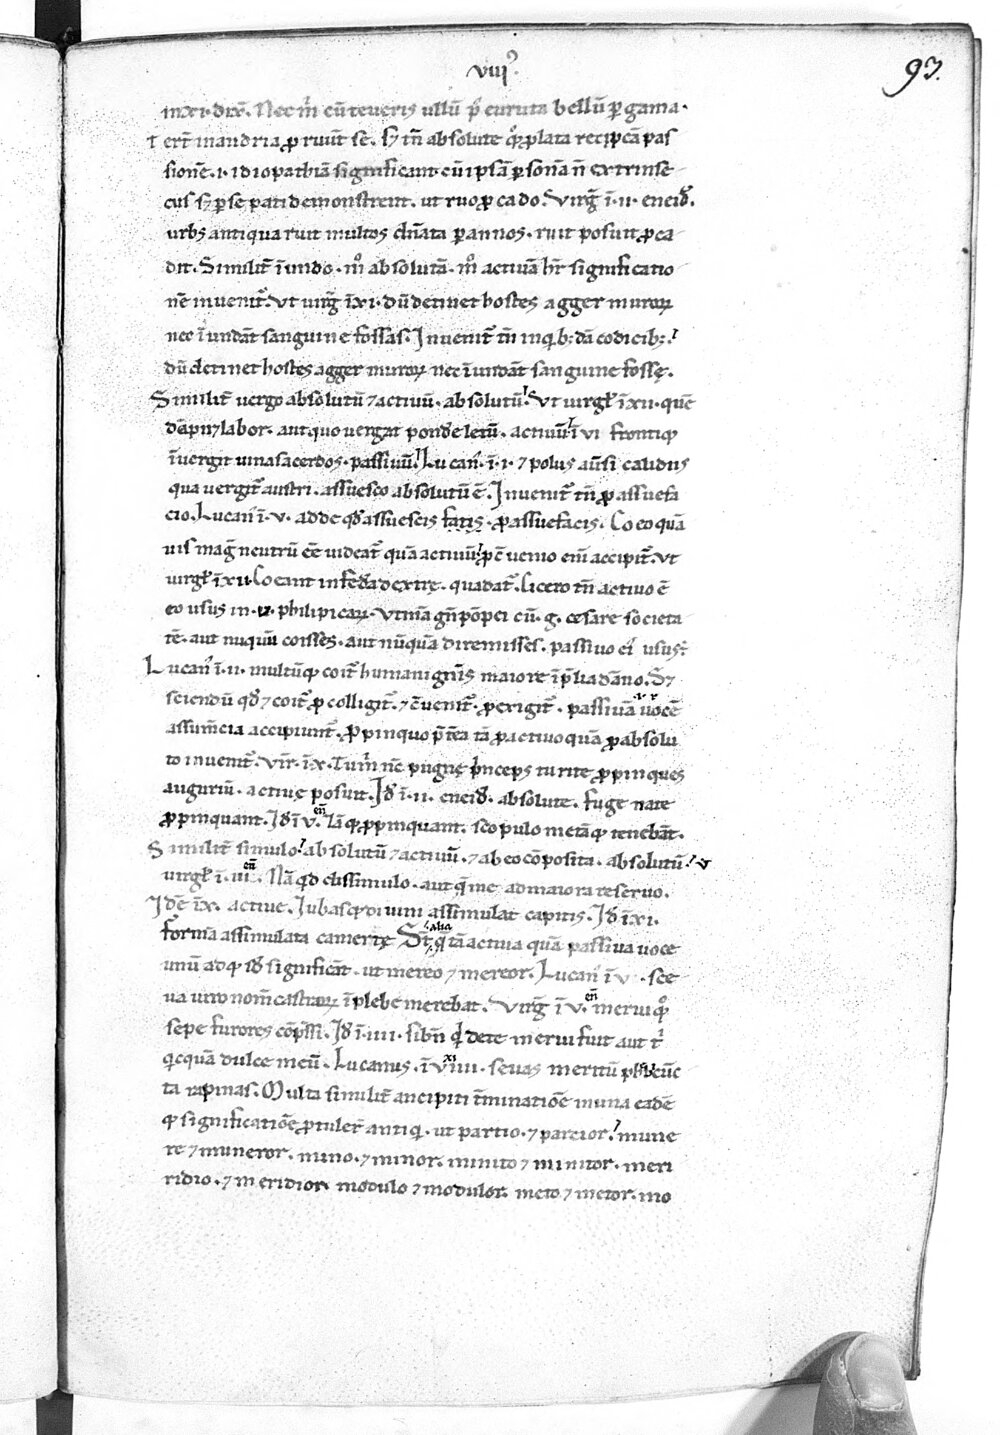 viii
93.
Nec m̄ cū teucris ullū p᷒ eruta bellū pergama.
se. s; tn̄ absolute
sionē .i. idiopathiā significant cū ipsā ꝑsonā n̄ extrinse
cus s; ꝑ se pati demonstrent. ut ruo ꝓ cado. Virg̃ ī .ii. eneid̄.
urbs antiqua ruit multos dn̄ata ꝑ annos. ruit posuit ꝓ ca
dit. Similit̄ īundo. m̊ absolutā. m̊ activā h̄r significatio
nē invenit̄. Ut virg̃ ī xi. dū detinet hostes agger muroꝝ
nec īundāt sanguine fossas. Invenit̄ tn̄ in q̇b;dā codicib;.
dū detinet hostes agger muroꝝ nec īundāt sanguine fossę.
Similit̄ vergo absolutū ⁊ activū. absolutū. Ut virgł ī xii. quē
dāpn; labor. aut quo vergat pond̄e letū. activū ī vi frontiq;
īvergit vina sacerdos. passivū. Lucan᷒ .ī .i. ⁊ polus aūsi calidus
qua vergit̄ austri. assuesco absolutū ē. Invenit̄ tn̄ ꝓ assuefa
cio. Lucan᷒ ī .v. adde qd̄ assuescis fatis. ꝓ assuefacis. Coeo quā
vis mag̃ neutrū eē videat̄ quā activū. ꝓ cōvenio enī accipit̄. Ut
virgł ī xii. Coeant in fed̄a dextrę. qua dat̄. Cicero tn̄ activo ē
eo usus in .ii. philipicaꝝ. Utinā gn̄ pōpei cū .g. cesare societa
tē. aut nuquū coisses. aut nūquā diremisses. passivo ei᷒ usus.
Lucan᷒ ī .ii. multūq; coit̄ humani gn̄is maiore ī p̄lia dāno. S;
sciendū qd̄ ⁊ coit̄ ꝓ colligit̄. ⁊ cōvenit̄. ꝓ exigit̄. passivā vocē
accipiunt̄. Ꝓpinquo p̄tea tā ꝓ activo quā ꝓ absolu
to invenit̄. Vir̄. ī .x. Turn᷒ nc̄ pugnę p̄nceps turite ꝓpinques
augurium. active posuit. Id̄ ī .ii. eneid̄. absolute. fuge nate
ꝓpinquant. Id̄ ī v. en̄ Iāq; ꝓpinquant. scopulo metāq; tenebāt.
Similit̄ simulo. absolutū ⁊ activū. ⁊ ab eo cōposita. absolutū. ut
virgł ī .iiii. en̄. Nā qd̄ dissimulo. aut q̄ me ad maiora reservo.
Idē ī x. active. Iubasq; divini assimulat capitis. Id̄ ī xi.
formā assimulata camertę. St̄ alia q̄ tā activa quā passiva voce
unū adq; id̄ significāt. ut mereo ⁊ mereor. Lucan᷒ ī v. sce
va viro nom̄ castraꝝ ī plebe merebat. Virg̃ ī v. en̄ merui q̊
sepe furores cōpssi. Id̄ ī .iiii. si bn̄ q᷒ de te merui fuit aut t᷒
qicquā dulce meū. Lucanus. ī viiii. sevas meritū
ta rapinas. Multa similit̄ ancipiti t̄minatiōe in una eadē
q; significatiōe ꝓtuler̄ antiqi. ut partio. ⁊ partior. mune
re ⁊ muneror. mino. ⁊ minor. minito ⁊ minitor. meri
ridio. ⁊ meridior. modulo ⁊ modulor. meto ⁊ metor. mo